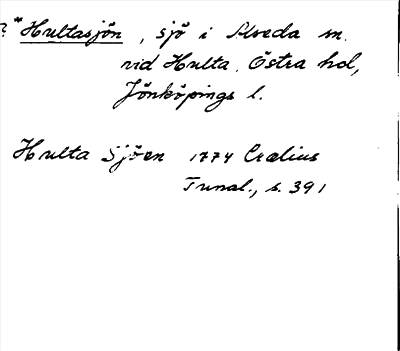 ?*Hultasjön, sjö i Alseda sn.
vid Hulta. Östra hd,
Jönköpings l.
Hulta Sjöen 1774 Crælius
Tunal., s. 391